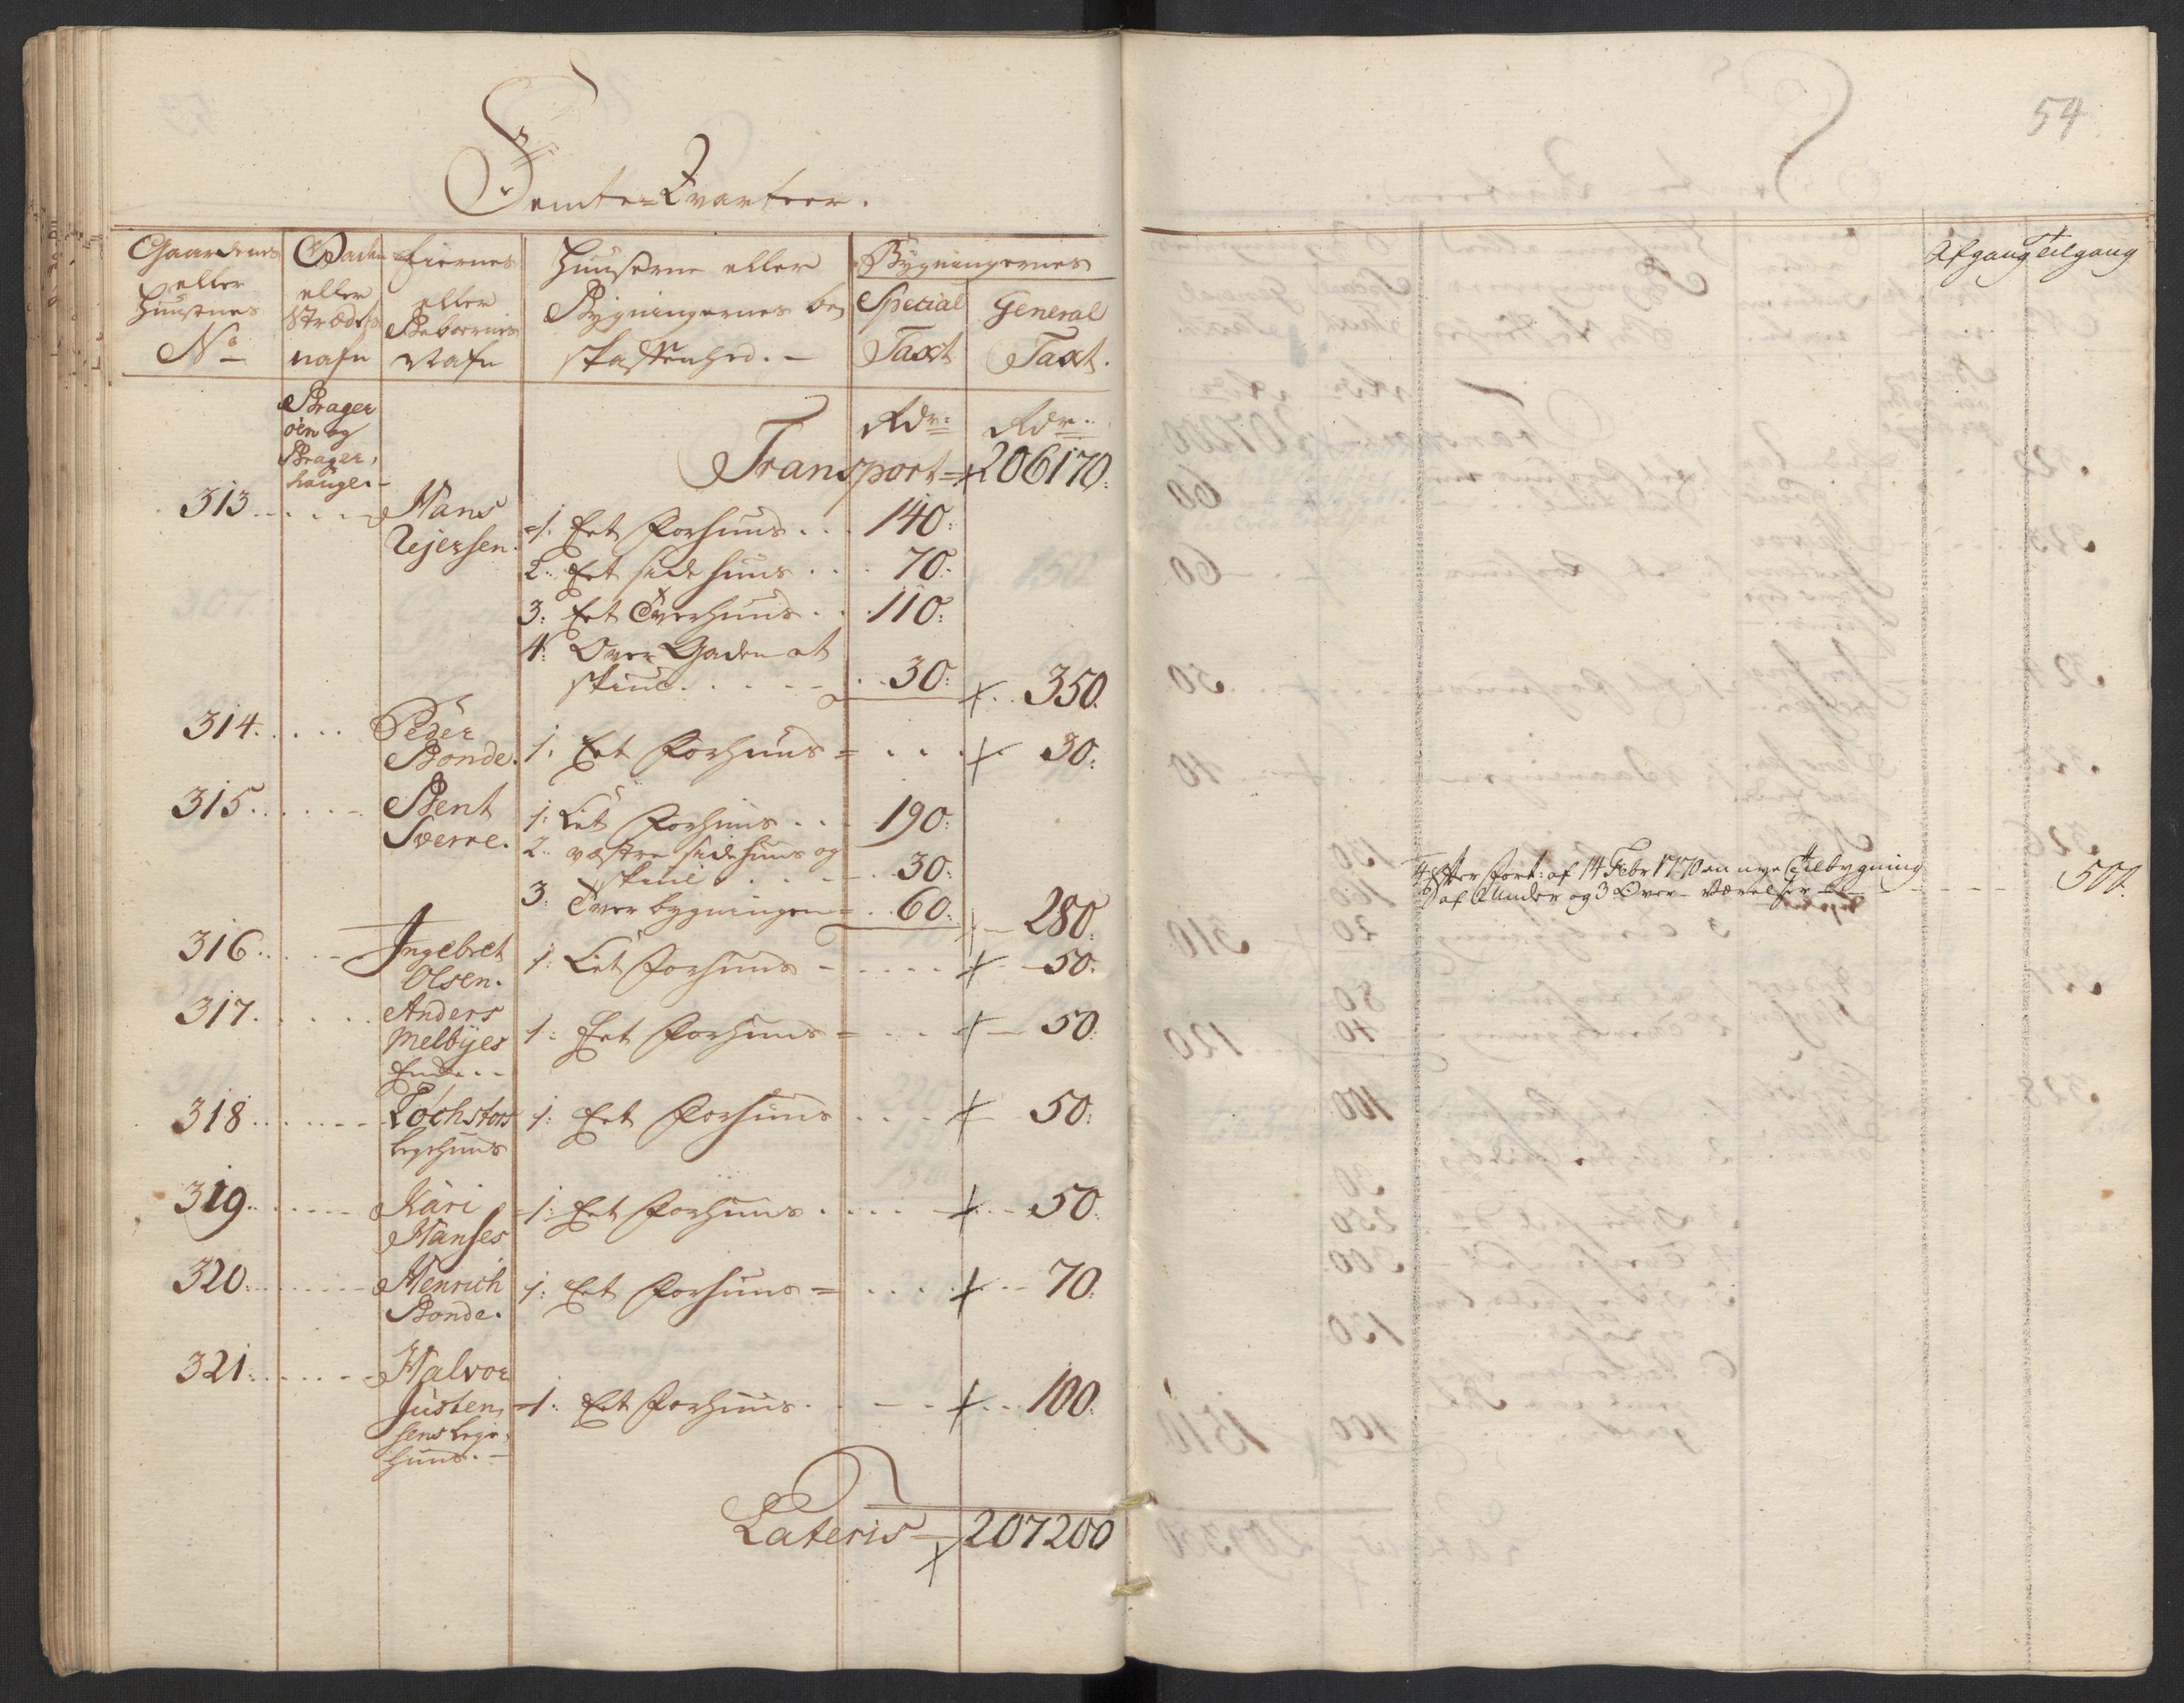 Femte=Qvarteer.
Gaardenes eller Huusenes No
Gaden eller Strædets nafn
Eiernes eller Beboernes Nafn
Huuserne eller Bygningernes beskaffenhed. -
Bygningernes
Special Taxt
General Taxt.
Brager
öen og
Brager,
hauge. -
Rdr: Rdr:
Transport = 206170:
313 . . . . Hans
Ujersen.
1. Eet Forhuus . . . 140:
2. Eet side huus . . . 70:
3: Eet Tverhuus . . 110:
4: Over Gaden et
skiul . . . . . 30: 350.
314. . . . . Peder
Bonde. 1. Eet Forhuus = . . . 30:
315. . . . . Bent
Sverre.
1: Eet Forhuus . . . 190:
2. væstre side huus og
skiul . . . . 30:
3: Tver bygningen = . . 60: 280:
316. . . . Ingebret
Olsen. 1: Eet Forhuus - . . . . 50:
317. . . . . Anders
Melbyes
Enke. . 1: Eet Forhuus = . . . 50.
318 . . . . . Tochstors
leyehuus 1: Eet Forhuus . . . 50:
319. . . . . Kari
Hanses 1: Eet Forhuus . . . . 50:
320. . . . . Henrich
Bonde. 1: Eet Forhuus = . . . . 70.
321. . . . . Halvor
Justen,
sens leye,
huus. - 1: Eet Forhuus . . . . 100:
Lateris = 207200
54
Afgang Tilgang
Efter Fort: af 14 Febr 1770 en nye Tilbygning
af 2 Under og 3 Over Værelser 500.